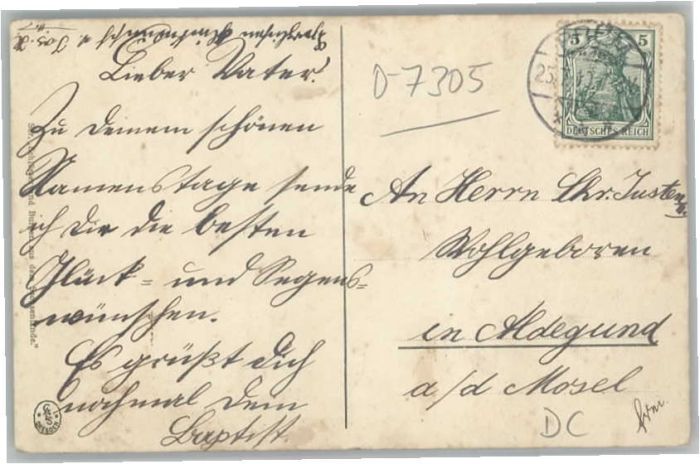 Lieber Vater!
Zu deinem schönen
Namenstage sende
ich Dir die besten
Glück- und Segens-
wünschen.
Es grüßt dich
nochmal dein
Baptist.
D-7305
5 5
DEUTSCHES REICH
An Herrn Lhr. Justen
Wohlgeboren
in Aldegund
a/d Mosel
DC